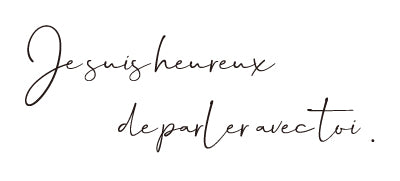 Je suis heureux
de parler avec toi.